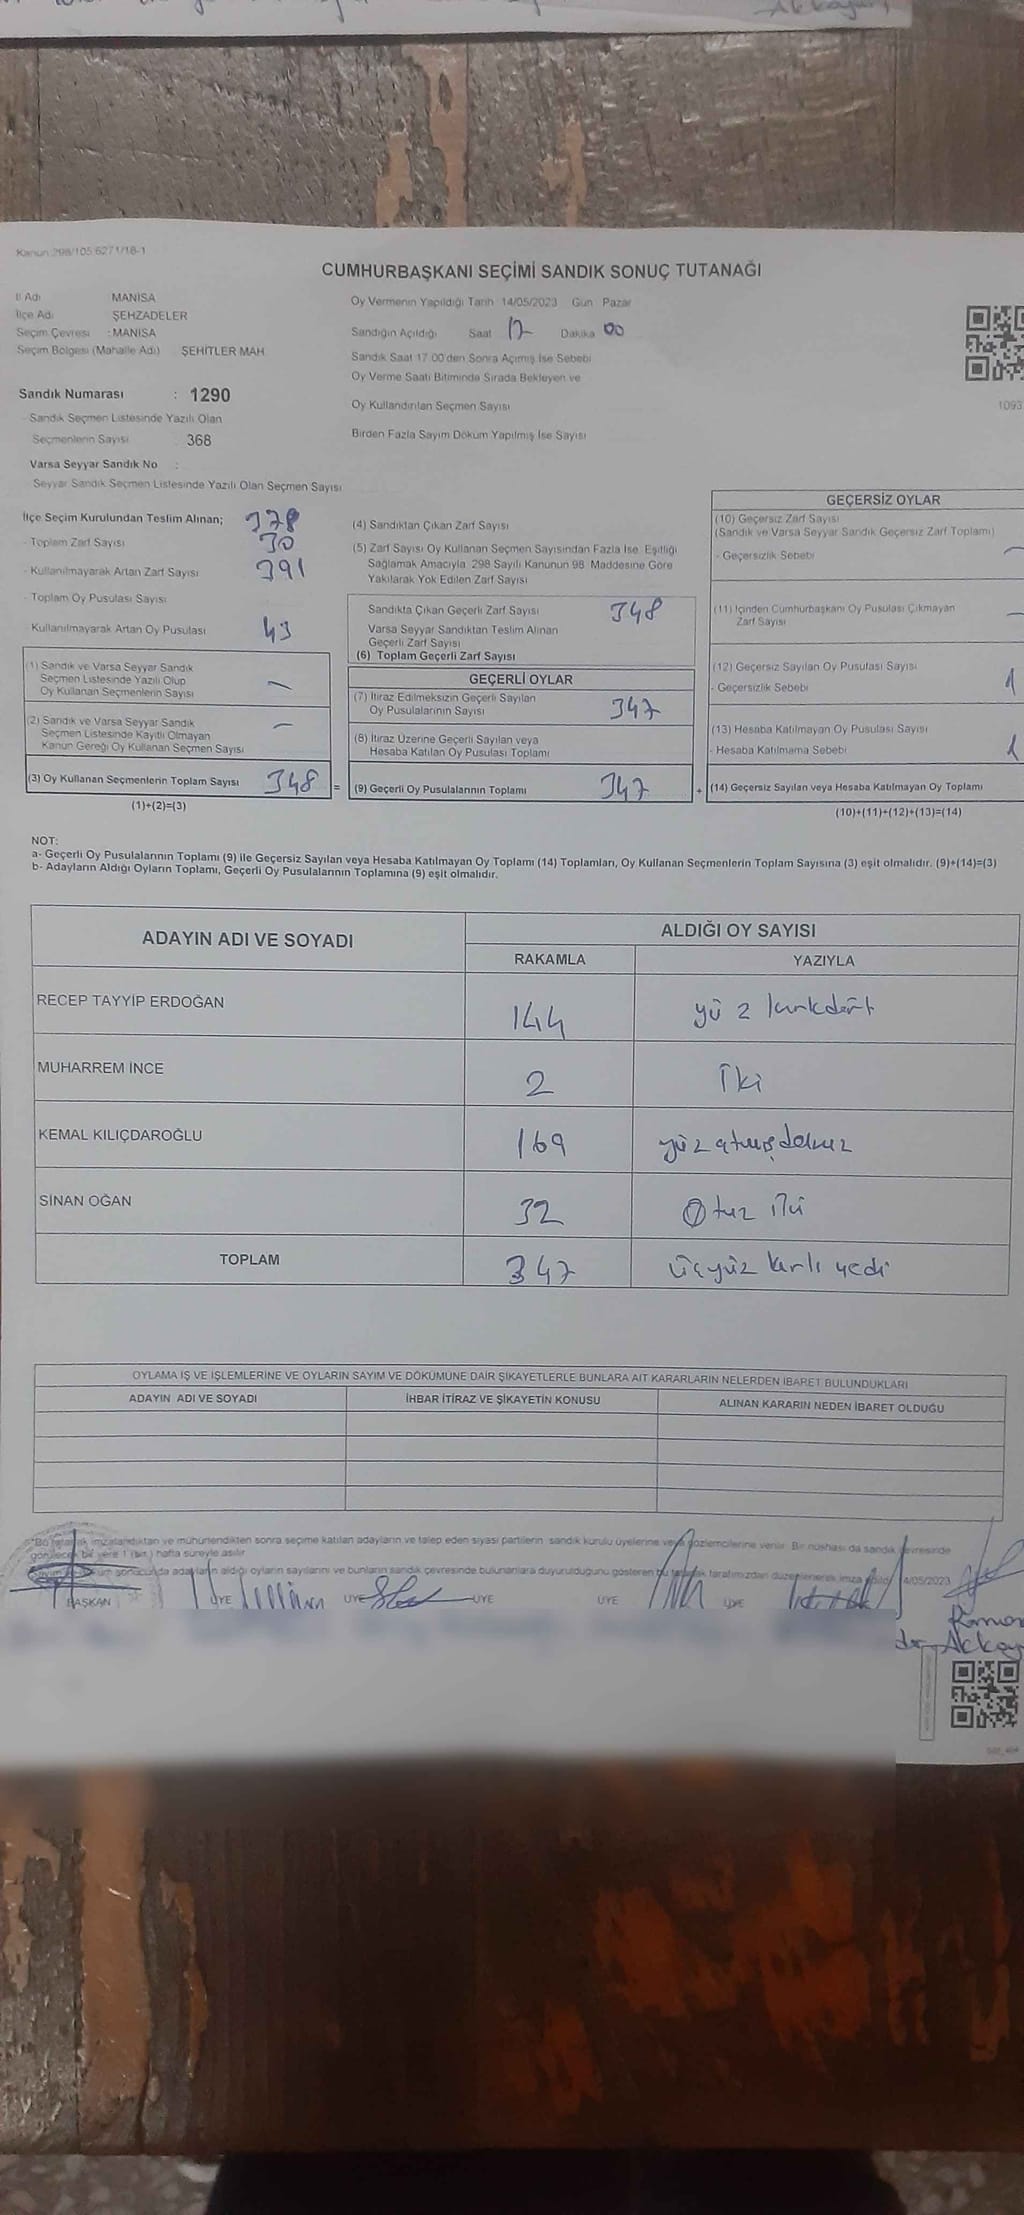 Kanun:298/105 6271/18-1
CUMHURBAŞKANI SEÇİMİ SANDIK SONUÇ TUTANAĞI
İl Adı MANİSA
İlçe Adı ŞEHZADELER
Seçim Çevresi : MANİSA
Seçim Bölgesi (Mahalle Adı) ŞEHİTLER MAH
Oy Vermenin Yapıldığı Tarih 14/05/2023 Gün Pazar
Sandığın Açıldığı Saat 17 Dakika 00
Sandık Saat 17:00'den Sonra Açımış İse Sebebi
Oy Verme Saati Bitiminde Sırada Bekleyen ve
Oy Kullandırılan Seçmen Sayısı
Birden Fazla Sayım Döküm Yapılmış İse Sayısı
1093
Sandık Numarası : 1290
- Sandık Seçmen Listesinde Yazılı Olan
Seçmenlerin Sayısı 368
Varsa Seyyar Sandık No :
Seyyar Sandık Seçmen Listesinde Yazılı Olan Seçmen Sayısı
İlçe Seçim Kurulundan Teslim Alınan; 378
- Toplam Zarf Sayısı 30
- Kullanılmayarak Artan Zarf Sayısı 391
- Toplam Oy Pusulası Sayısı
Kullanılmayarak Artan Oy Pusulası 43
(1) Sandık ve Varsa Seyyar Sandık
Seçmen Listesinde Yazılı Olup
Oy Kullanan Seçmenlerin Sayısı –
(2) Sandık ve Varsa Seyyar Sandık
Seçmen Listesinde Kayıtlı Olmayan
Kanun Gereği Oy Kullanan Seçmen Sayısı –
(3) Oy Kullanan Seçmenlerin Toplam Sayısı 348 =
(1)+(2)=(3)
(4) Sandıktan Çıkan Zarf Sayısı
(5) Zarf Sayısı Oy Kullanan Seçmen Sayısından Fazla İse, Eşitliği
Sağlamak Amacıyla 298 Sayılı Kanunun 98. Maddesine Göre
Yakılarak Yok Edilen Zarf Sayısı
Sandıkta Çıkan Geçerli Zarf Sayısı 348
Varsa Seyyar Sandıktan Teslim Alınan
Geçerli Zarf Sayısı
(6) Toplam Geçerli Zarf Sayısı
GEÇERLİ OYLAR
(7) İtiraz Edilmeksizin Geçerli Sayılan
Oy Pusulalarının Sayısı 347
(8) İtiraz Üzerine Geçerli Sayılan veya
Hesaba Katılan Oy Pusulası Toplamı
(9) Geçerli Oy Pusulalarının Toplamı 347 +
GEÇERSİZ OYLAR
(10) Geçersiz Zarf Sayısı
(Sandık ve Varsa Seyyar Sandık Geçersiz Zarf Toplamı)
- Geçersizlik Sebebi –
(11) İçinden Cumhurbaşkanı Oy Pusulası Çıkmayan
Zarf Sayısı –
(12) Geçersiz Sayılan Oy Pusulası Sayısı
- Geçersizlik Sebebi 1
(13) Hesaba Katılmayan Oy Pusulası Sayısı
- Hesaba Katılmama Sebebi 1
(14) Geçersiz Sayılan veya Hesaba Katılmayan Oy Toplamı
(10)+(11)+(12)+(13)=(14)
NOT:
a- Geçerli Oy Pusulalarının Toplamı (9) ile Geçersiz Sayılan veya Hesaba Katılmayan Oy Toplamı (14) Toplamları, Oy Kullanan Seçmenlerin Toplam Sayısına (3) eşit olmalıdır. (9)+(14)=(3)
b- Adayların Aldığı Oyların Toplamı, Geçerli Oy Pusulalarının Toplamına (9) eşit olmalıdır.
ADAYIN ADI VE SOYADI ALDIĞI OY SAYISI
RAKAMLA YAZIYLA
RECEP TAYYİP ERDOĞAN 144 yüz kırkdört
MUHARREM İNCE 2 İki
KEMAL KILIÇDAROĞLU 169 yüz atmış dokuz
SİNAN OĞAN 32 Otuz iki
TOPLAM 347 üçyüz kırk yedi
OYLAMA İŞ VE İŞLEMLERİNE VE OYLARIN SAYIM VE DÖKÜMÜNE DAİR ŞİKAYETLERLE BUNLARA AİT KARARLARIN NELERDEN İBARET BULUNDUKLARI
ADAYIN ADI VE SOYADI İHBAR İTİRAZ VE ŞİKAYETİN KONUSU ALINAN KARARIN NEDEN İBARET OLDUĞU
"Bu tutanak imzalandıktan ve mühürlendikten sonra seçime katılan adayların ve talep eden siyasi partilerin sandık kurulu üyelerine veya gözlemcilerine verilir. Bir nüshası da sandık çevresinde
görülecek bir yere 1 (bir) hafta süreyle asılır.
sonucunda adayların aldığı oyların sayılarını ve bunların sandık çevresinde bulunanlara duyurulduğunu gösteren bu tutanak tarafımızdan düzenlenerek imza edildi 14/05/2023
BAŞKAN ÜYE ÜYE ÜYE ÜYE ÜYE